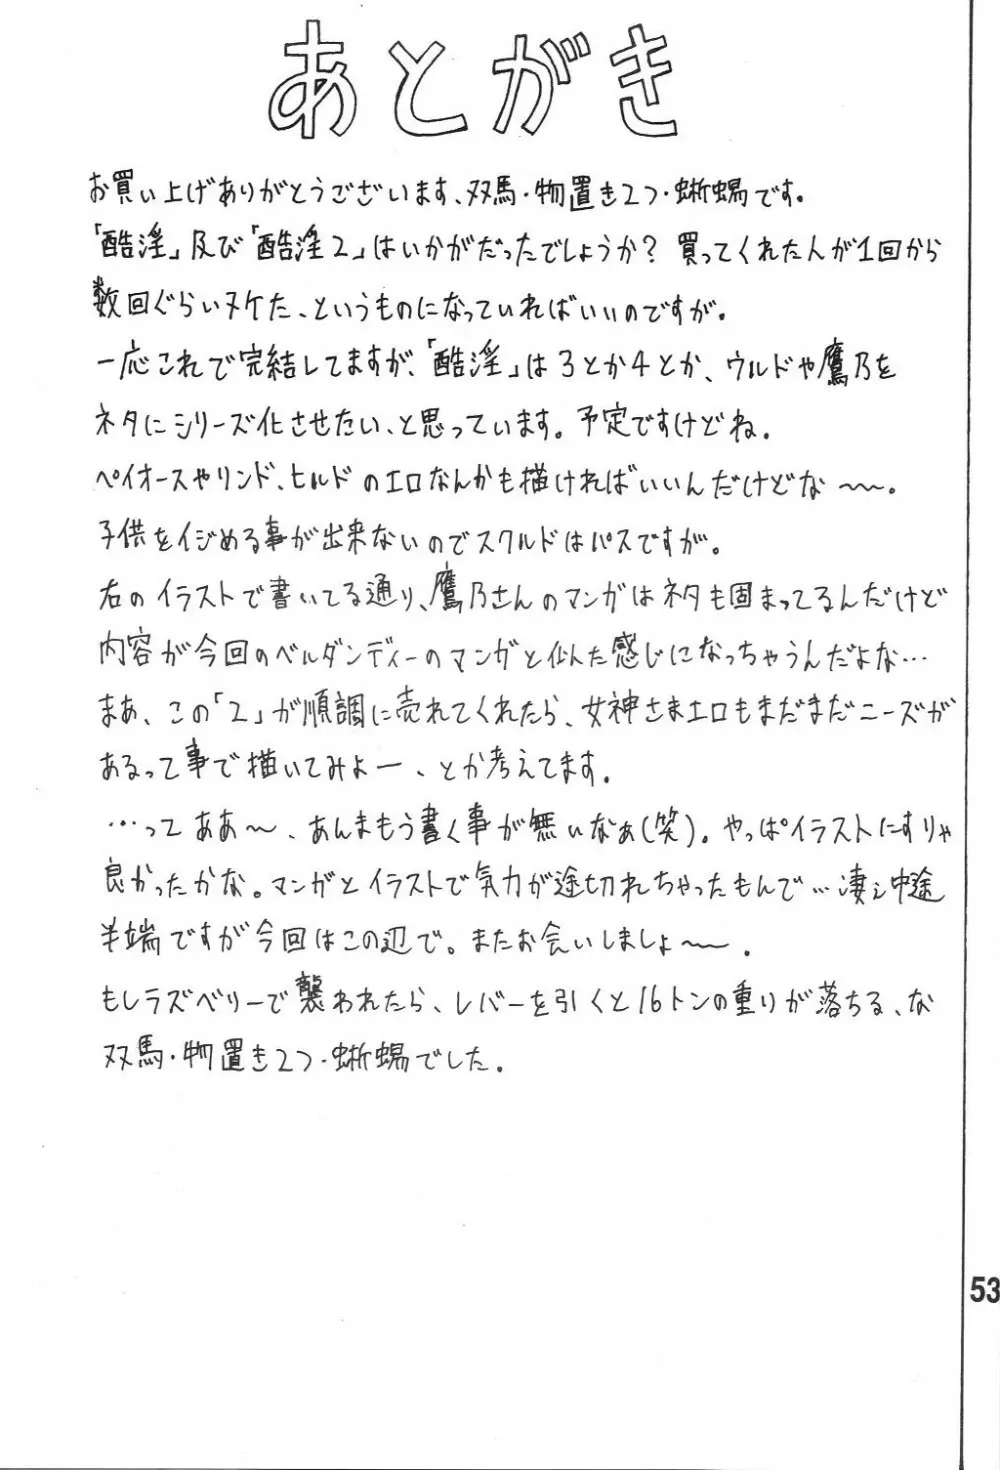 あとがき
お買い上げありがとうございます、双馬・物置き2つ・蜥蜴です。
「酷淫」及び「酷淫2」はいかがだったでしょうか？ 買ってくれた人が1回から
数回ぐらいヌケた、というものになっていればいいのですが。
一応これで完結してますが、「酷淫」は3とか4とか、ウルドや鷹乃を
ネタにシリーズ化させたい、と思っています。予定ですけどね。
ペイオースやリンド、ヒルドのエロなんかも描ければいいんだけどな〜〜。
子供をイジめる事が出来ないのでスクルドはパスですが。
右のイラストで書いてる通り、鷹乃さんのマンガはネタも固まってるんだけど
内容が今回のベルダンディーのマンガと似た感じになっちゃうんだよな…
まあ、この「2」が順調に売れてくれたら、女神さまエロもまだまだニーズが
あるって事で描いてみよー、とか考えてます。
…ってああ〜、あんまもう書く事が無いなぁ(笑)。やっぱイラストにすりゃ
良かったかな。マンガとイラストで気力が途切れちゃったもんで…凄ェ中途
半端ですが今回はこの辺で。またお会いしましょ〜〜.
もしラズベリーで襲われたら、レバーを引くと16トンの重りが落ちる、な
双馬・物置き2つ・蜥蜴でした。
53